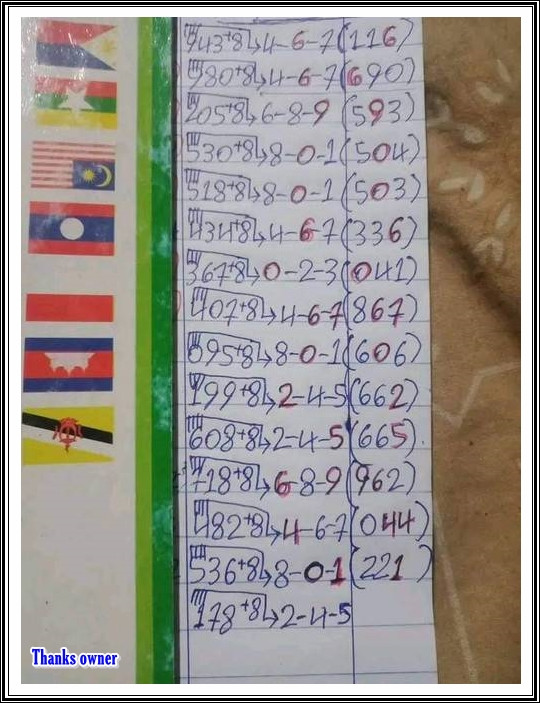 943+8↳4-6-7(116)
980+8↳4-6-7(690)
205+8↳6-8-9(593)
530+8↳8-0-1(504)
518+8↳8-0-1(503)
434+8↳4-6-7(336)
367+8↳0-2-3(041)
407+8↳4-6-7(867)
695+8↳8-0-1(606)
199+8↳2-4-5(662)
608+8↳2-4-5(665).
718+8↳6-8-9(962)
482+8↳4-6-7(044)
536+8↳8-0-1(221)
178+8↳2-4-5
Thanks owner